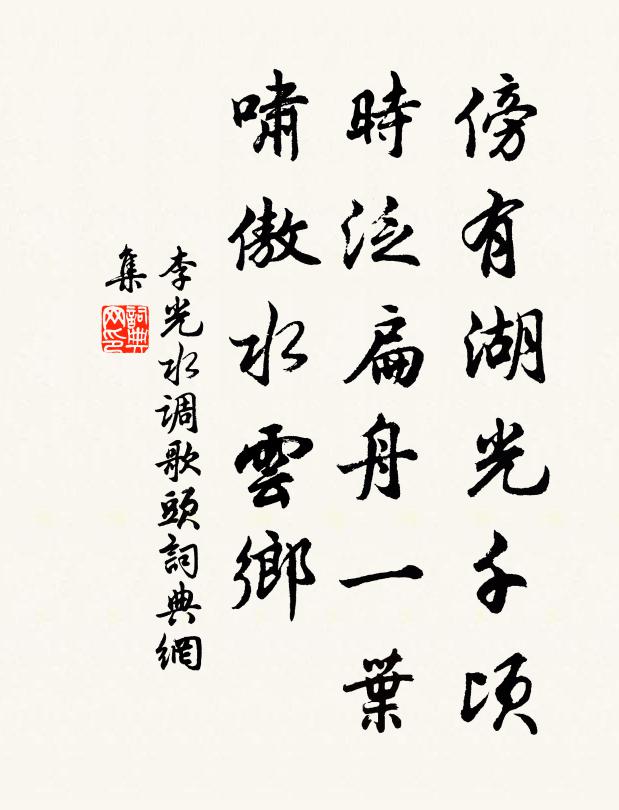 傍有湖光千頃
時泛扁舟一葉
嘯傲水雲鄉
李光水调歌頭詞典網
集
詞典网印